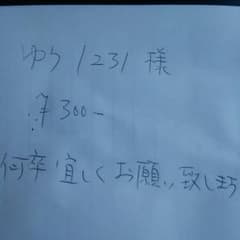 ゆう1231様
¥300-
何卒宜しくお願い致します